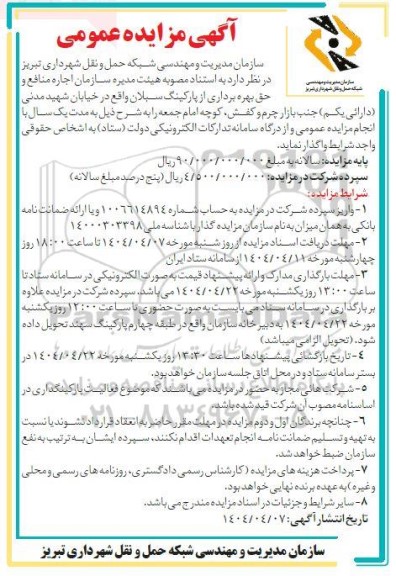 آگهی مزایده عمومی
سازمان مدیریت و مهندسی
شبکه حمل و نقل شهرداری تبریز
سازمان مدیریت و مهندسی شبکه حمل و نقل شهرداری تبریز
در نظر دارد به استناد مصوبه هیئت مدیره سازمان اجاره منافع و
حق بهره برداری از پارکینگ سبلان واقع در خیابان شهید مدنی
(دارائی یکم) جنب بازار چرم و کفش، کوچه امام جمعه را به شرح ذیل به مدت یک سال با
انجام مزایده عمومی و از درگاه سامانه تدارکات الکترونیکی دولت (ستاد) به اشخاص حقوقی
واجد شرایط واگذار نماید.
پایه مزایده: سالانه به مبلغ ۹۰/۰۰۰/۰۰۰/۰۰۰ ریال
سپرده شرکت در مزایده: ۴/۵۰۰/۰۰۰/۰۰۰ ریال (پنج درصد مبلغ سالانه)
شرایط مزایده:
۱- واریز سپرده شرکت در مزایده به حساب شماره ۱۰۰۶۶۱۴۸۹۴ و یا ارائه ضمانت نامه
بانکی به همان میزان به نام سازمان مزایده گذار با شناسه ملی ۱۴۰۰۰۳۰۳۳۹۸
۲- مهلت دریافت اسناد مزایده از روز شنبه مورخه ۱۴۰۴/۰۴/۰۷ تا ساعت ۱۸:۰۰ روز
چهارشنبه مورخه ۱۴۰۴/۰۴/۱۱ از سامانه ستاد ایران
۳- مهلت بارگذاری مدارک و ارائه پیشنهاد قیمت به صورت الکترونیکی در سامانه ستاد تا
ساعت ۱۳:۰۰ روز یکشنبه مورخه ۱۴۰۴/۰۴/۲۲ می باشد، سپرده شرکت در مزایده علاوه
بر بارگذاری در سامانه ستاد می بایست به صورت حضوری تا ساعت ۱۲:۰۰ روز یکشنبه
مورخه ۱۴۰۴/۰۴/۲۲ به دبیرخانه سازمان واقع در طبقه چهارم پارکینگ سهند تحویل داده
شود. (تحویل الزامی میباشد)
۴- تاریخ بازگشائی پیشنهادها ساعت ۱۳:۳۰ روز یکشنبه مورخه ۱۴۰۴/۰۴/۲۲ در
بستر سامانه ستاد و در محل اتاق جلسه سازمان خواهد بود.
۵- شرکت هائی مجاز به حضور در مزایده می باشند که موضوع فعالیت پارکینگداری در
اساسنامه مصوب آن شرکت قید شده باشد.
۶- چنانچه برندگان اول و دوم مزایده در مهلت مقرر حاضر به انعقاد قرارداد نشوند یا نسبت
به تهیه و تسلیم ضمانت نامه انجام تعهدات اقدام نکنند، سپرده ایشان به ترتیب به نفع
سازمان ضبط خواهد شد.
۷- پرداخت هزینه های مزایده (کارشناس رسمی دادگستری، روزنامه های رسمی و محلی
و غیره) به عهده برنده نهایی خواهد بود.
۸- سایر شرایط و جزئیات در اسناد مزایده مندرج می باشد.
تاریخ انتشار آگهی: ۱۴۰۴/۰۴/۰۷
سازمان مدیریت و مهندسی شبکه حمل و نقل شهرداری تبریز